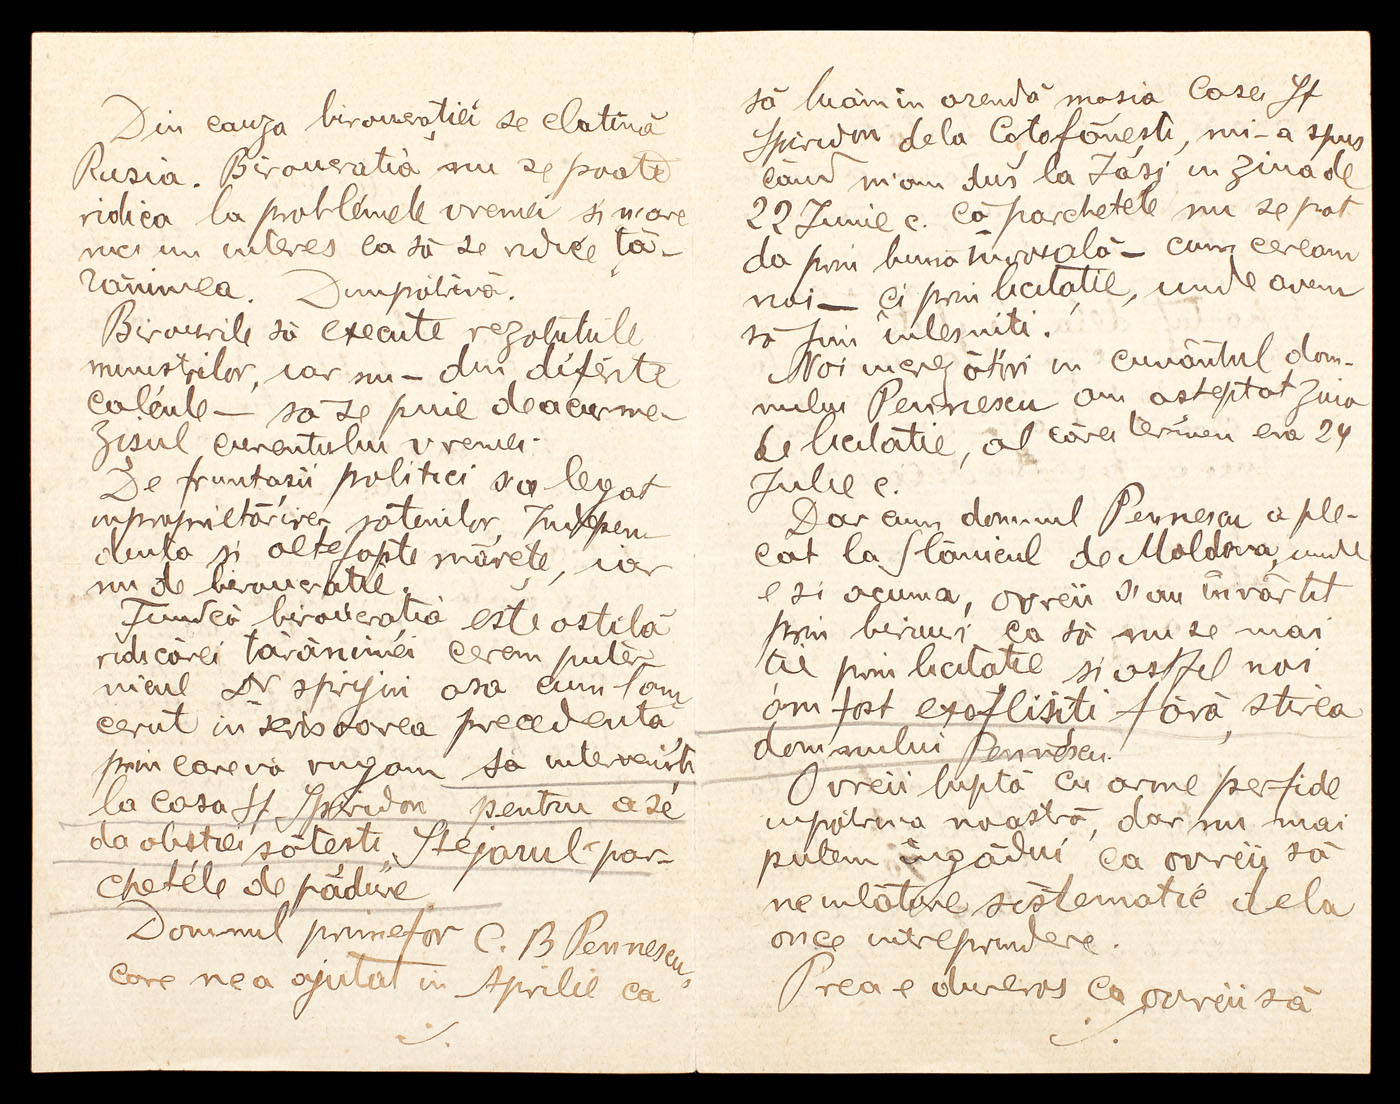 Din cauza birocrației se clatină
Rusia. Birocratia nu se poate
ridica la problemele vremei si n'are
nici un interes ca să se ridice tă-
rănimea. Dimpotrivă.
Birourile să execute rezolutiile
ministrilor, iar nu – din diferite
calcule – să se puie deacurme-
zisul curentului vremei.
De fruntasii politici s'a legat
improprietărirea sătenilor, Indepen
denta si alte fapte mărete, iar
nu de birocratie.
Fiindcă birocratia este ostilă
ridicărei tărănimei cerem puter-
nicul Dv sprijin asa cum l'am
cerut in scrisoarea precedentă,
prin care vă rugam să interveniti
la casa Sf Spiridon pentru a se
da obstiei sătesti, Stejarul par-
chetele de pădure
Domnul primefor C. B Pennescu,
care ne a ajutat in Aprilie ca
să luăm in arendă mosia Casei Sf
Spiridon dela Cotofănesti, mi-a spus
când m'am dus la Iási in ziua de
22 Junie c. că parchetele nu se pot
da prin bună învoială – cum ceream
noi – ci prin licitatie, unde avem
să fim înlesniti.
Noi increzători in cuvântul dom-
nului Pennescu am asteptat ziua
de licitatie, al cărei termen era 24
Julie c.
Dar cum domnul Pennescu a ple-
cat la Slănicul de Moldova, unde
e si acuma, ovreii s'au învârtit
prin birouri ca să nu se mai
tie prin licitatie si astfel noi
am fost exoflisiti fără stirea
domnului Pennescu.
Ovreii luptă cu arme perfide
impotriva noastră, dar nu mai
putem îngădui ca ovreii să
ne inlăture sistematic dela
orice intreprindere.
Prea e dureros ca ovreii să